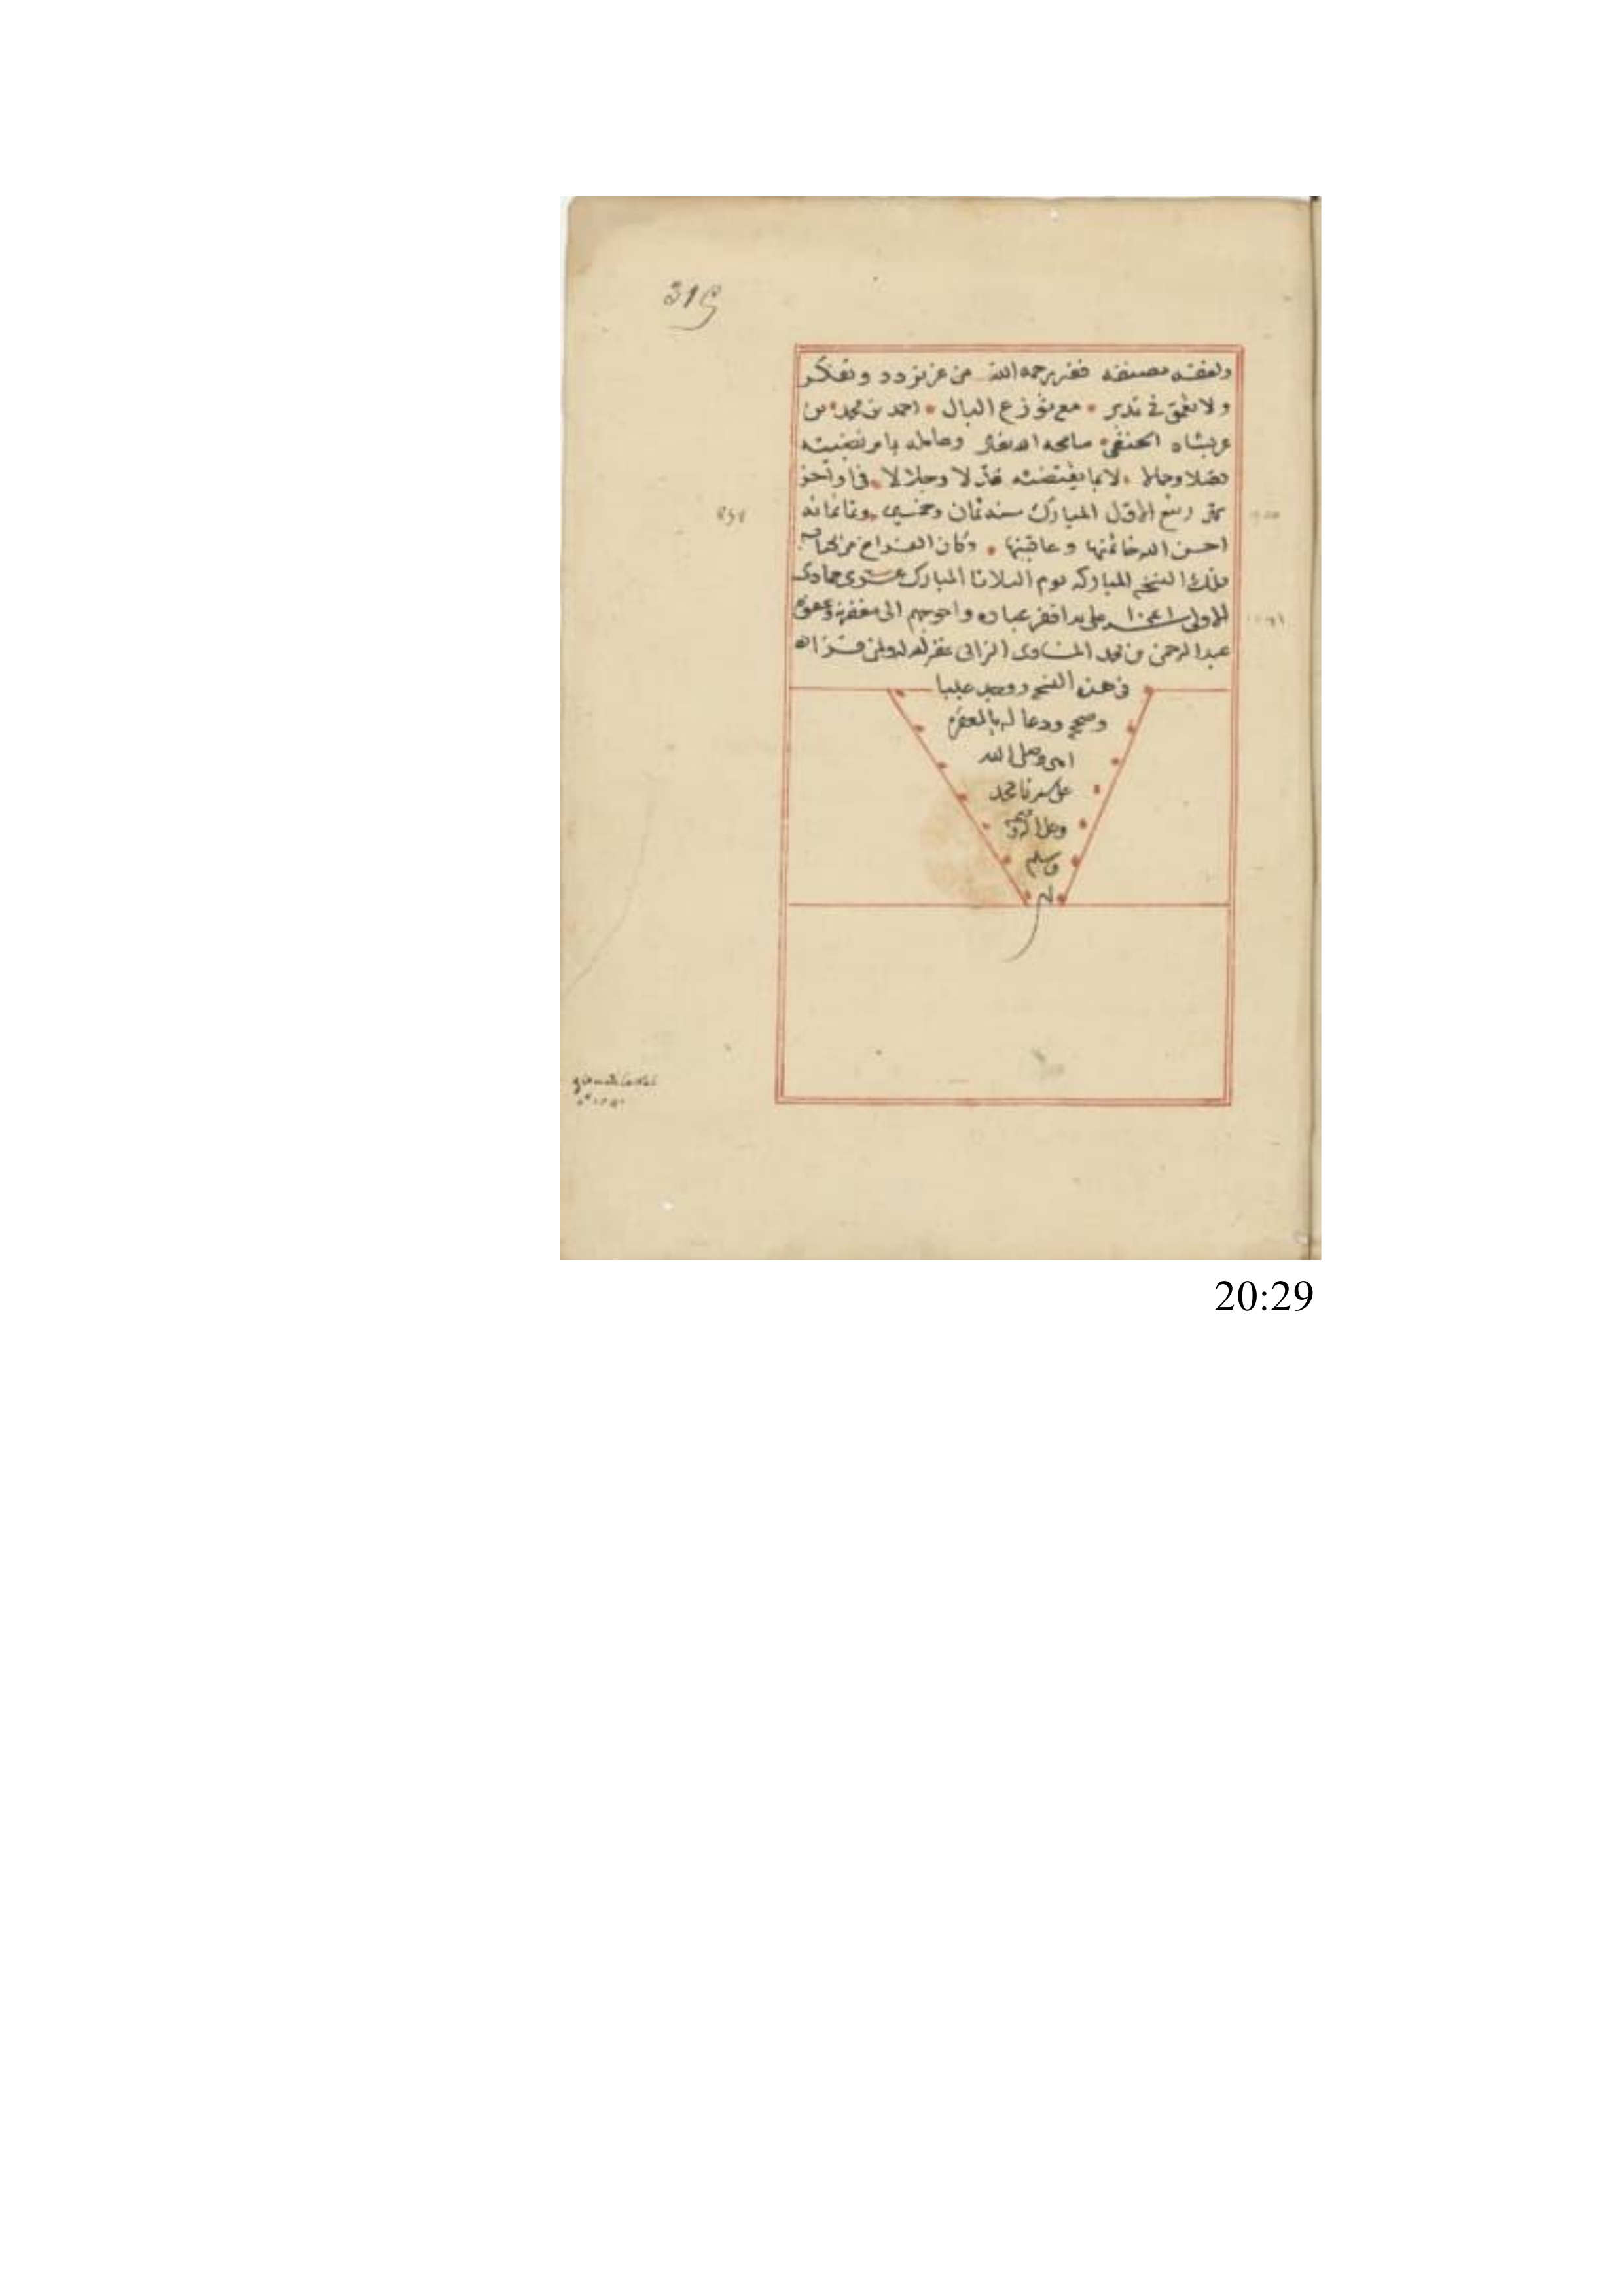 315
ولفقه مصنفه فقير رحمة الله من غير تردد وتفكر
ولا تعمق في تدبر • مع توزع البال • احمد بن محمد بن
عربشاه الحنفي سامحه الله تعالى وعامله بما
فضلا وجمالا لا بما يقتضيه عدلا وجلالا في اواخر
ربيع الاول المبارك سنه ثمان وخمسين وثمانمائه
858
احسن الله خاتمتها وعاقبتها • وكان الفراغ من كتابة
تلك النسخه المباركه يوم الثلاثا المبارك جمادى
الاولى على يد افقر عباده واحوجهم الى مغفرته وعفوه
عبد الرحمن بن محمد غفر الله له ولمن قرا
في هذه النسخه ووجد عيبا
وصحح ودعا له بالمغفره
امين وصلى الله
على سيدنا محمد
وعلى اله وصحبه
وسلم
تم
20:29